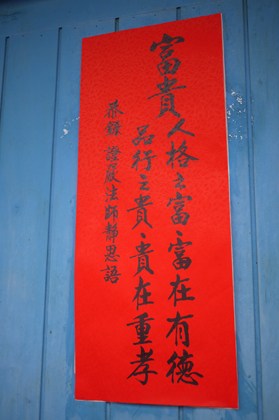 富貴
人格之富、富在有德
品行之貴、貴在重孝
恭錄 證嚴法師靜思語